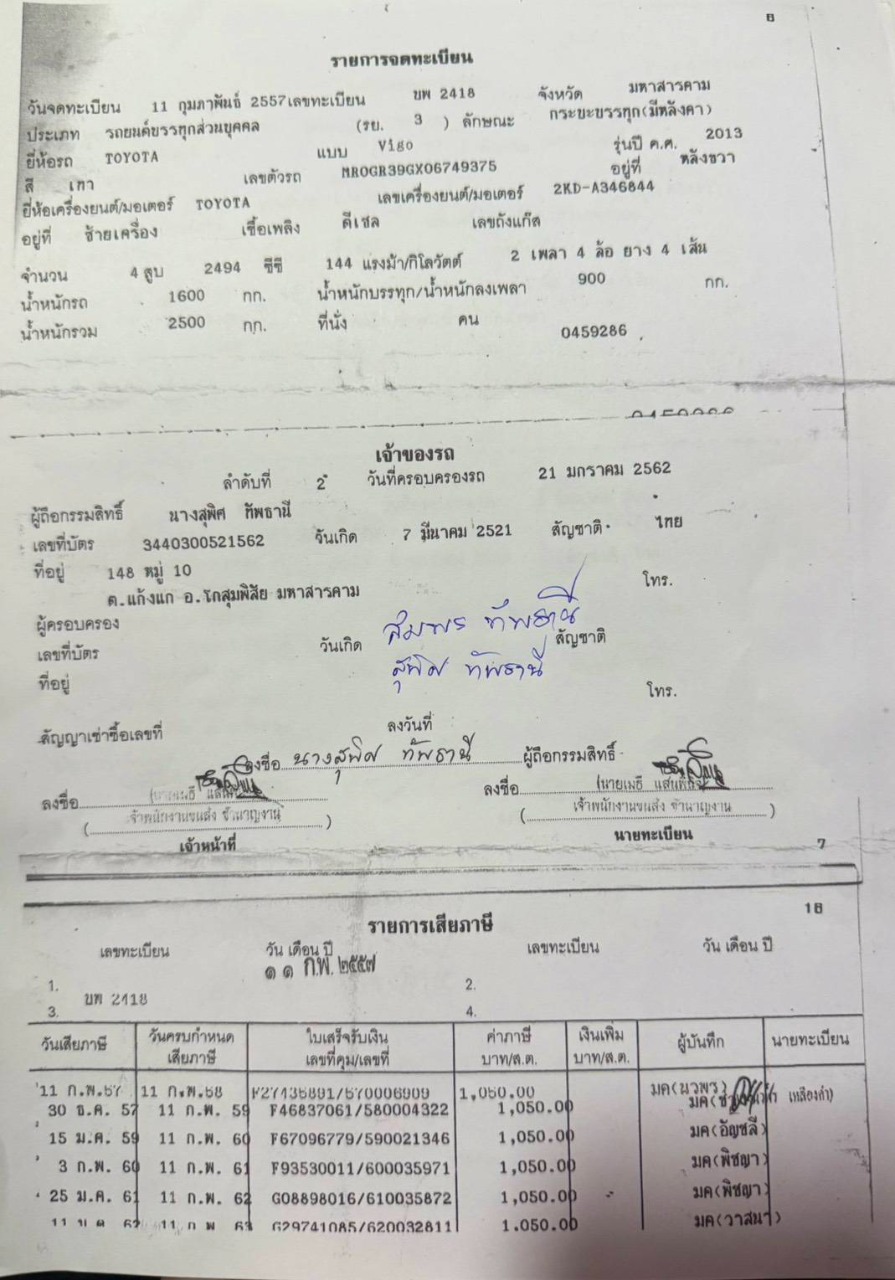 8
รายการจดทะเบียน
วันจดทะเบียน 11 กุมภาพันธ์ 2557 เลขทะเบียน บพ 2418 จังหวัด มหาสารคาม
ประเภท รถยนต์บรรทุกส่วนบุคคล (รย. 3 ) ลักษณะ กระบะบรรทุก(มีหลังคา)
ยี่ห้อรถ TOYOTA แบบ Vigo รุ่นปี ค.ศ. 2013
สี เทา เลขตัวรถ MR0GR39GX06749375 อยู่ที่ หลังขวา
ยี่ห้อเครื่องยนต์/มอเตอร์ TOYOTA เลขเครื่องยนต์/มอเตอร์ 2KD-A346844
อยู่ที่ ซ้ายเครื่อง เชื้อเพลิง ดีเซล เลขถังแก๊ส
จำนวน 4 สูบ 2494 ซีซี 144 แรงม้า/กิโลวัตต์ 2 เพลา 4 ล้อ ยาง 4 เส้น
น้ำหนักรถ 1600 กก. น้ำหนักบรรทุก/น้ำหนักลงเพลา 900 กก.
น้ำหนักรวม 2500 กก. ที่นั่ง คน
0459286
เจ้าของรถ
ลำดับที่ 2 วันที่ครอบครองรถ 21 มกราคม 2562
ผู้ถือกรรมสิทธิ์ นางสุพิศ ทัพธานี
เลขที่บัตร 3440300521562 วันเกิด 7 มีนาคม 2521 สัญชาติ ไทย
ที่อยู่ 148 หมู่ 10 โทร.
ต.แก้งแก อ.โกสุมพิสัย มหาสารคาม
ผู้ครอบครอง สมพร ทัพธานี
เลขที่บัตร วันเกิด สัญชาติ
ที่อยู่ สุพิศ ทัพธานี โทร.
สัญญาเช่าซื้อเลขที่ ลงวันที่
ลงชื่อ นางสุพิศ ทัพธานี ผู้ถือกรรมสิทธิ์
ลงชื่อ ลงชื่อ (นายเมธี
(เจ้าพนักงานขนส่ง ชำนาญงาน) (เจ้าพนักงานขนส่ง ชำนาญงาน)
เจ้าหน้าที่ นายทะเบียน
7
18
รายการเสียภาษี
เลขทะเบียน วัน เดือน ปี เลขทะเบียน วัน เดือน ปี
๑๑ ก.พ. ๒๕๕๗
1. 2.
บพ 2418
3. 4.
วันเสียภาษี วันครบกำหนดเสียภาษี ใบเสร็จรับเงิน เลขที่คุม/เลขที่ ค่าภาษี บาท/ส.ต. เงินเพิ่ม บาท/ส.ต. ผู้บันทึก นายทะเบียน
11 ก.พ.57 11 ก.พ.58 F27436891/570006909 1,050.00 มค(นวพร)
30 ธ.ค. 57 11 ก.พ. 59 F46837061/580004322 1,050.00
15 ม.ค. 59 11 ก.พ. 60 F67096779/590021346 1,050.00 มค(อัญชลี)
3 ก.พ. 60 11 ก.พ. 61 F93530011/600035971 1,050.00 มค(พิชญา)
25 ม.ค. 61 11 ก.พ. 62 G08898016/610035872 1,050.00 มค(พิชญา)
62 11 ก.พ. 63 G29741085/620032811 1,050.00 มค(วาสนา)